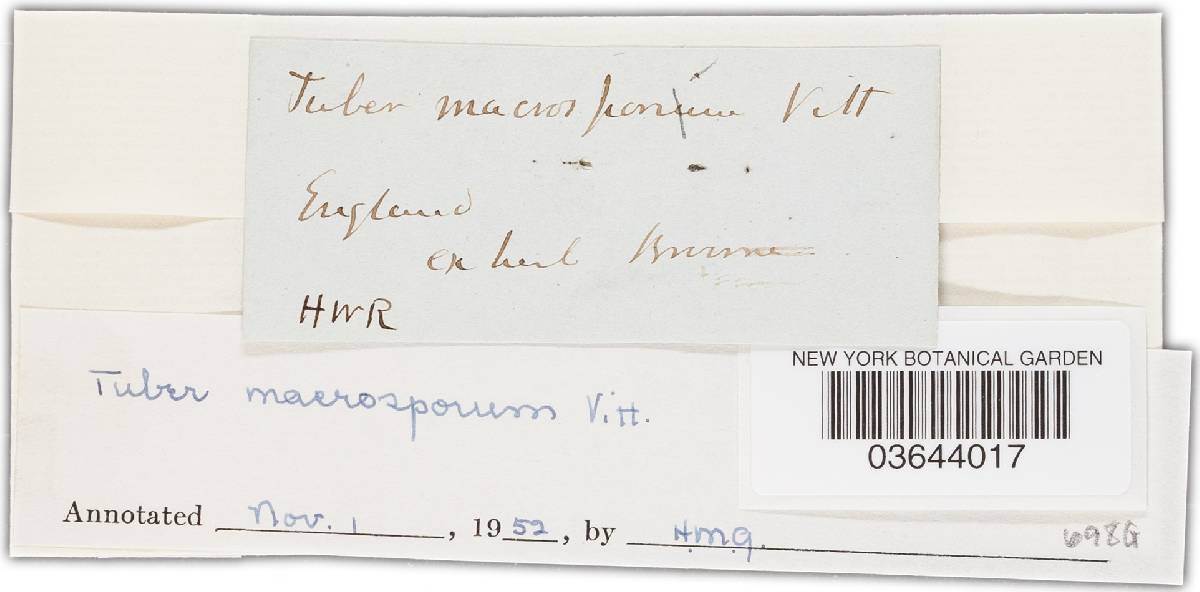 Tuber macrosporum Vitt
England
ex herb Broome
HWR
NEW YORK BOTANICAL GARDEN
03644017
Tuber macrosporum Vitt.
Annotated Nov. 1, 1952, by H.M.G.
698G